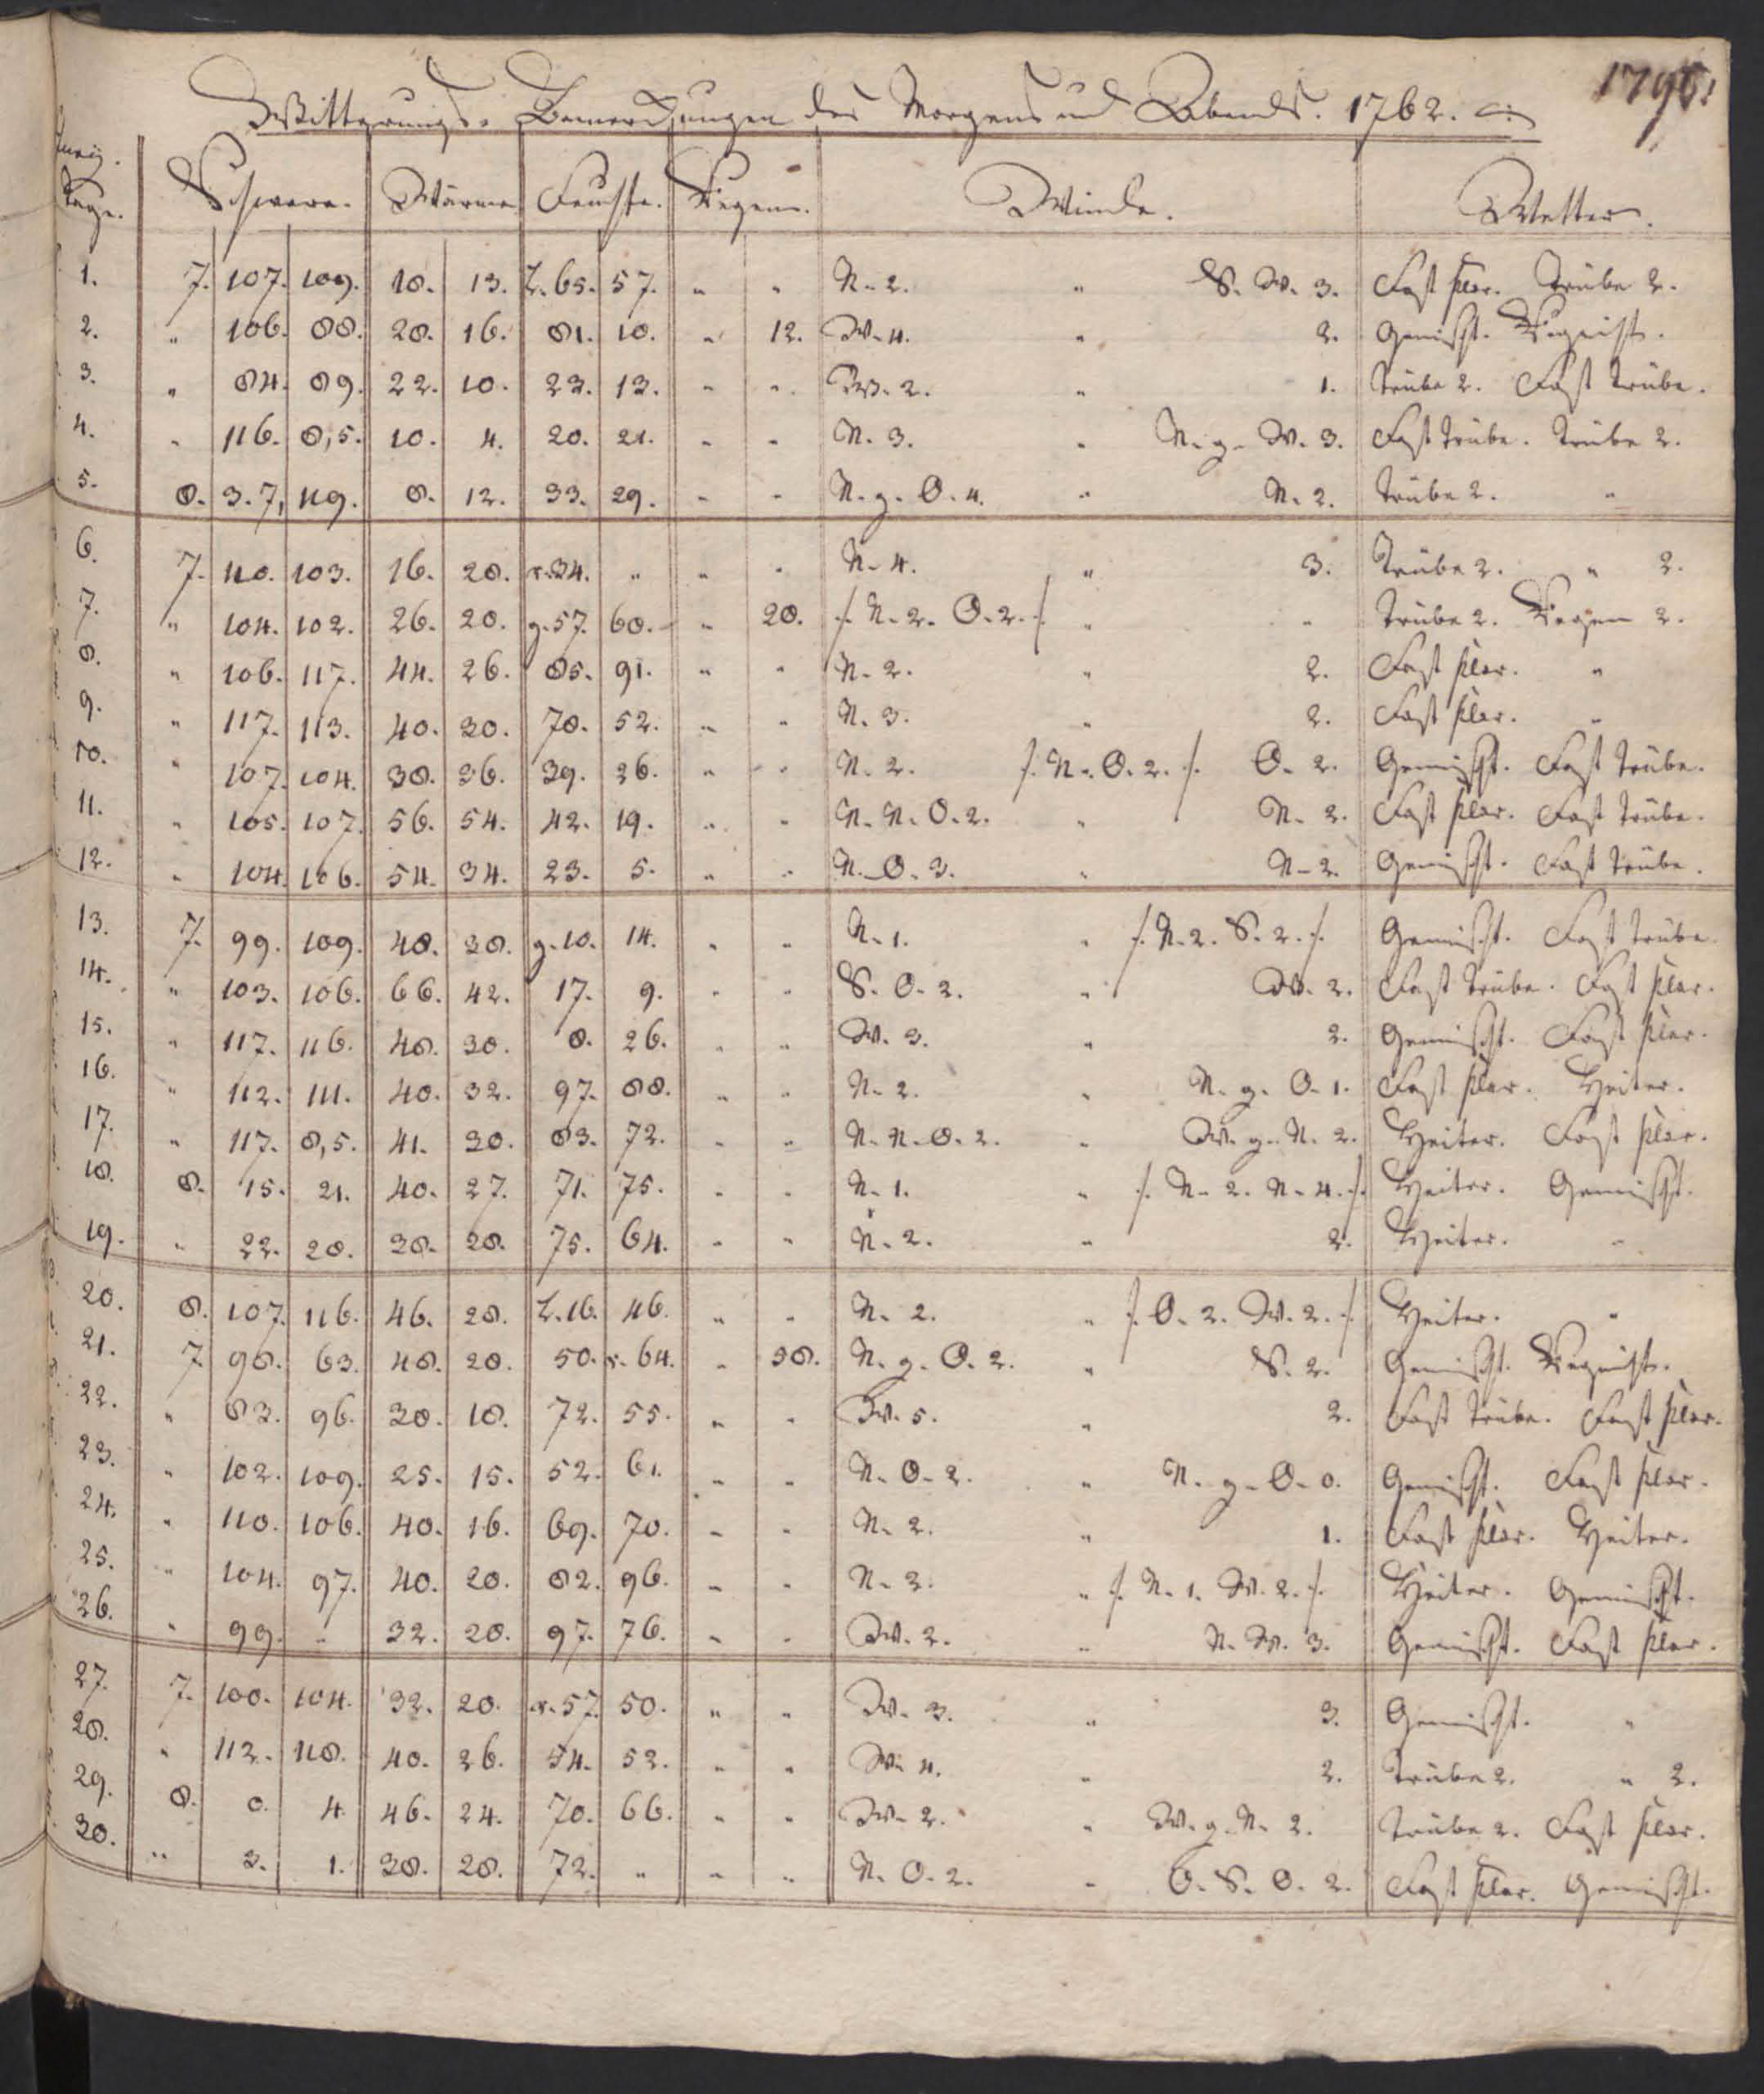 1796!
Witterungs-Bemerckungen des Morgens und Abends. 1762.
Tage. Schwere. Wärme Feuchte. Regen. Winde. Wetter.
1. 7. 107. 109. 18. 13. L. 65. 57. " " N. 2. " S. W. 3. Fast klar. Trübe 2.
2. " 106. 88. 28. 16. 81. 10. " 12. W. 4. " 2. Gemischt. Regnicht.
3. " 84. 89. 22. 10. 23. 13. " " W. 2. " 1. Trübe 2. Fast trübe.
4. " 116. 8,5. 10. 4. 20. 21. " " N. 3. " N. g. W. 3. Fast trübe. Trübe 2.
5. 8. 3. 7, 119. 8. 12. 33. 29. " " N. g. O. 4. " N. 2. Trübe 2. "
6. 7. 110. 103. 16. 20. r. 34. " " " N. 4. " 3. Trübe 2. " 2.
7. " 104. 102. 26. 20. g. 57. 60. " 20. /. N. 2. O. 2. /. " " Trübe 2. Regen 2.
8. " 106. 117. 44. 26. 85. 91. " " N. 2. " 2. Fast klar. "
9. " 117. 113. 40. 30. 70. 52. " " N. 3. " 2. Fast klar. "
10. " 107. 104. 38. 36. 39. 26. " " N. 2. /. N. O. 2. /. O. 2. Gemischt. Fast trübe.
11. " 105. 107. 56. 54. 42. 19. " " N. N. O. 2. " N. 2. Fast klar. Fast trübe.
12. " 104. 106. 54. 34. 23. 5. " " N. O. 3. " N. 2. Gemischt. Fast trübe.
13. 7. 99. 109. 48. 38. g. 10. 14. " " N. 1. " /. N. 2. S. 2. /. Gemischt. Fast trübe.
14. " 103. 106. 66. 42. 17. 9. " " S. O. 2. " W. 2. Fast trübe. Fast klar.
15. " 117. 116. 48. 30. 8. 26. " " W. 3. " 2. Gemischt. Fast klar.
16. " 112. 111. 40. 32. 97. 88. " " N. 2. " N. g. O. 1. Fast klar. Heiter.
17. " 117. 8,5. 41. 30. 83. 72. " " N. N. O. 2. " W. g. N. 2. Heiter. Fast klar.
18. 8. 15. 21. 40. 27. 71. 75. " " N. 1. " /. N. 2. N. 4. /. Heiter. Gemischt.
19. " 22. 20. 38. 28. 75. 64. " " N. 2. " 2. Heiter. "
20. 8. 107. 116. 46. 28. L. 16. 46. " " N. 2. " /. O. 2. W. 2. /. Heiter. "
21. 7. 98. 63. 48. 20. 50. r. 64. " 38. N. g. O. 2. " S. 2. Gemischt. Regnicht.
22. " 83. 96. 30. 18. 72. 55. " " W. 5. " 2. Fast trübe. Fast klar.
23. " 102. 109. 25. 15. 52. 61. " " N. O. 2. " N. g. O. 0. Gemischt. Fast klar.
24. " 110. 106. 40. 16. 69. 70. " " N. 2. " 1. Fast klar. Heiter.
25. " 104. 97. 40. 20. 82. 96. " " N. 3. " /. N. 1. W. 2. /. Heiter. Gemischt.
26. " 99. " 32. 20. 97. 76. " " W. 2. " N. W. 3. Gemischt. Fast klar.
27. 7. 100. 104. 32. 20. r. 57. 50. " " W. 3. " 3. Gemischt. "
28. " 112. 118. 40. 26. 54. 52. " " W. 4. " 2. Trübe 2. " 2.
29. 8. 0. 4. 46. 24. 70. 66. " " W. 2. " W. g. N. 2. Trübe 2. Fast klar.
30. " 3. 1. 38. 28. 72. " " " N. O. 2. " O. S. O. 2. Fast klar. Gemischt.